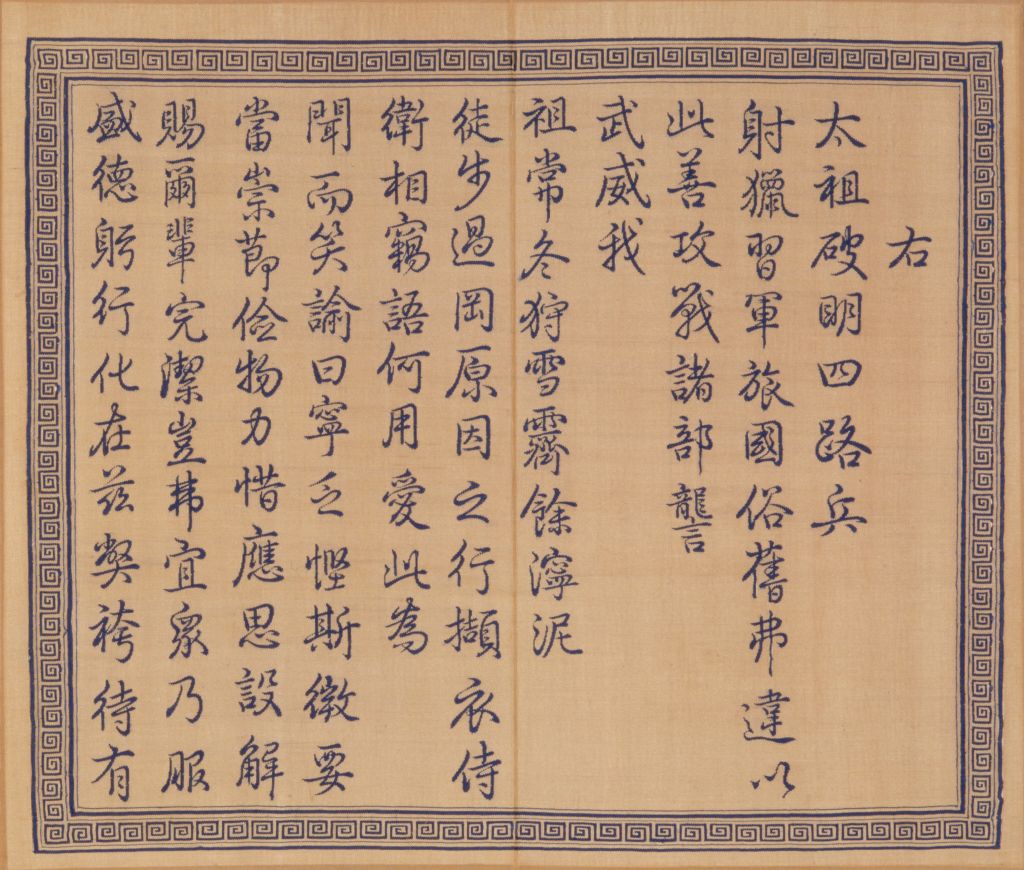 右
太祖破明四路兵
射獵習軍旅國俗舊弗違以
此善攻戰諸部讋
武威我
祖常冬狩雪霽餘濘泥
徒步過岡原因之行擷衣侍
衛相竊語何用愛此為
聞而笑諭曰寧乏慳斯徵要
當崇節儉物力惜應思設解
賜爾輩完潔豈弗宜衆乃服
盛德躬行化在茲弊袴待有